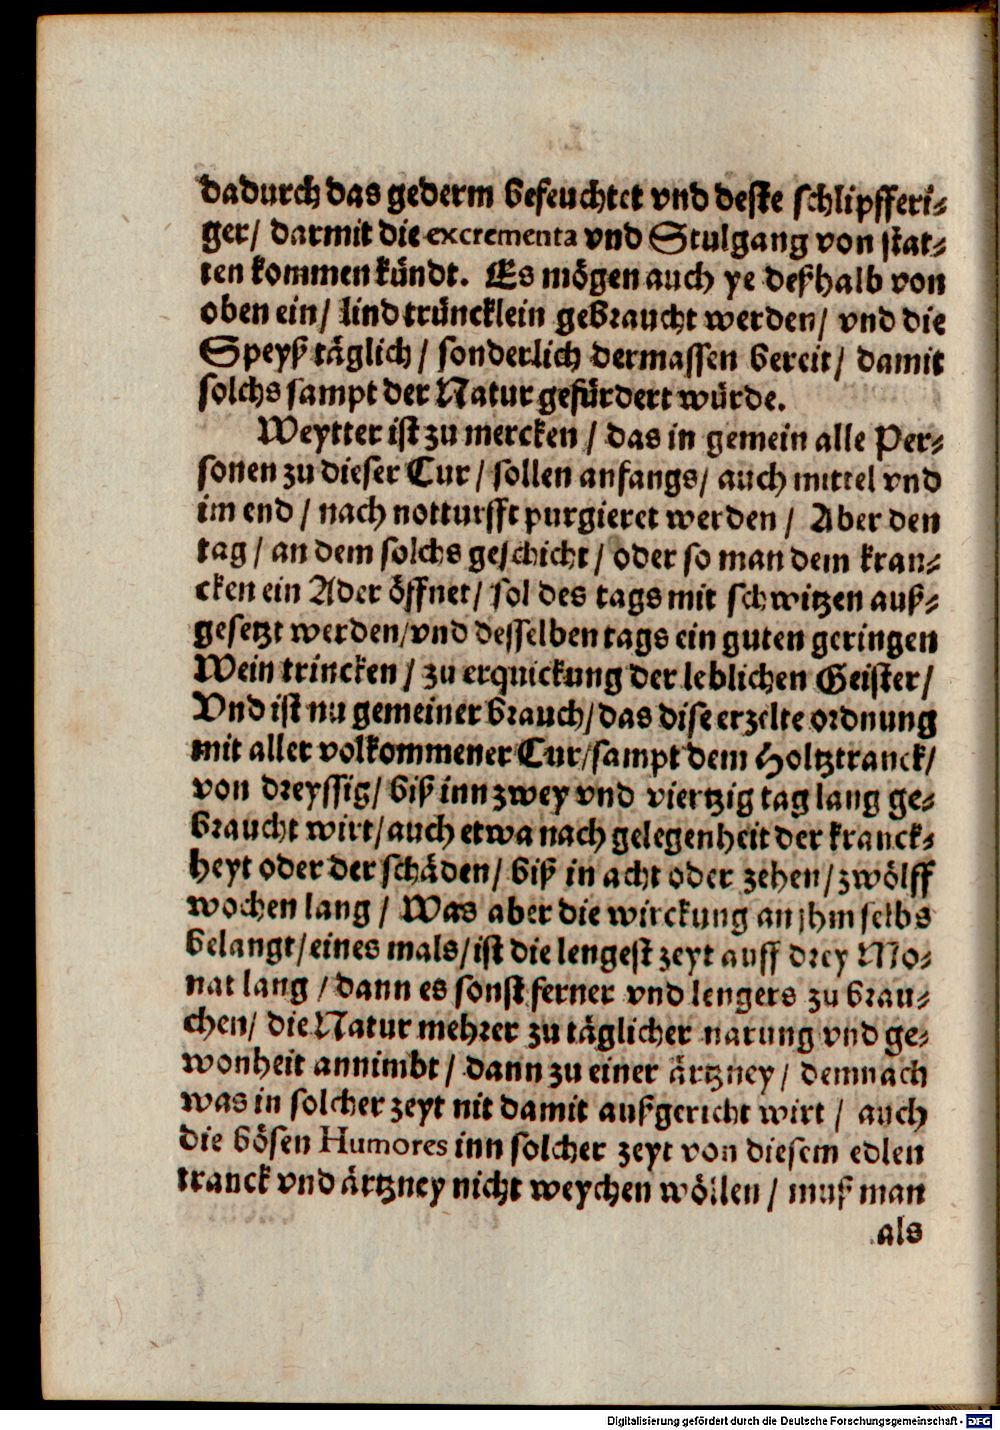 dadurch das gederm befeuchtet vnd deste schlipfferi⸗
ger/ darmit die excrementa vnd Stulgang von stat⸗
ten kommen kündt. Es mögen auch ye deßhalb von
oben ein/ lind trüncklein gebraucht werden/ vnd die
Speyß täglich/ sonderlich dermassen bereit/ damit
solchs sampt der Natur gefürdert würde.
Weytter ist zu mercken/ das in gemein alle Per⸗
sonen zu dieser Cur/ sollen anfangs/ auch mittel vnd
im end/ nach notturfft purgieret werden/ Aber den
tag/ an dem solchs geschicht/ oder so man dem kran⸗
cken ein Ader öffnet/ sol des tags mit schwitzen auß⸗
gesetzt werden/vnd desselben tags ein guten geringen
Wein trincken/ zu erquickung der leblichen Geister/
Vnd ist nu gemeiner brauch/das dise erzelte ordnung
mit aller volkommener Cur/sampt dem Holtztranck/
von dreyssig/ biß inn zwey vnd viertzig tag lang ge⸗
braucht wirt/auch etwa nach gelegenheit der kranck⸗
heyt oder der schäden/ biß in acht oder zehen/zwölff
wochen lang/ Was aber die wirckung an jhm selbs
belangt/eines mals/ist die lengest zeyt auff drey Mo⸗
nat lang/dann es sonst ferner vnd lengers zu brau⸗
chen/ die Natur mehrer zu täglicher narung vnd ge⸗
wonheit annimbt/ dann zu einer ärtzney/ demnach
was in solcher zeyt nit damit außgericht wirt/ auch
die bösen Humores inn solcher zeyt von diesem edlen
tranck vnd ärtzney nicht weychen wöllen/ muß man
als
Digitalisierung gefördert durch die Deutsche Forschungsgemeinschaft - DFG